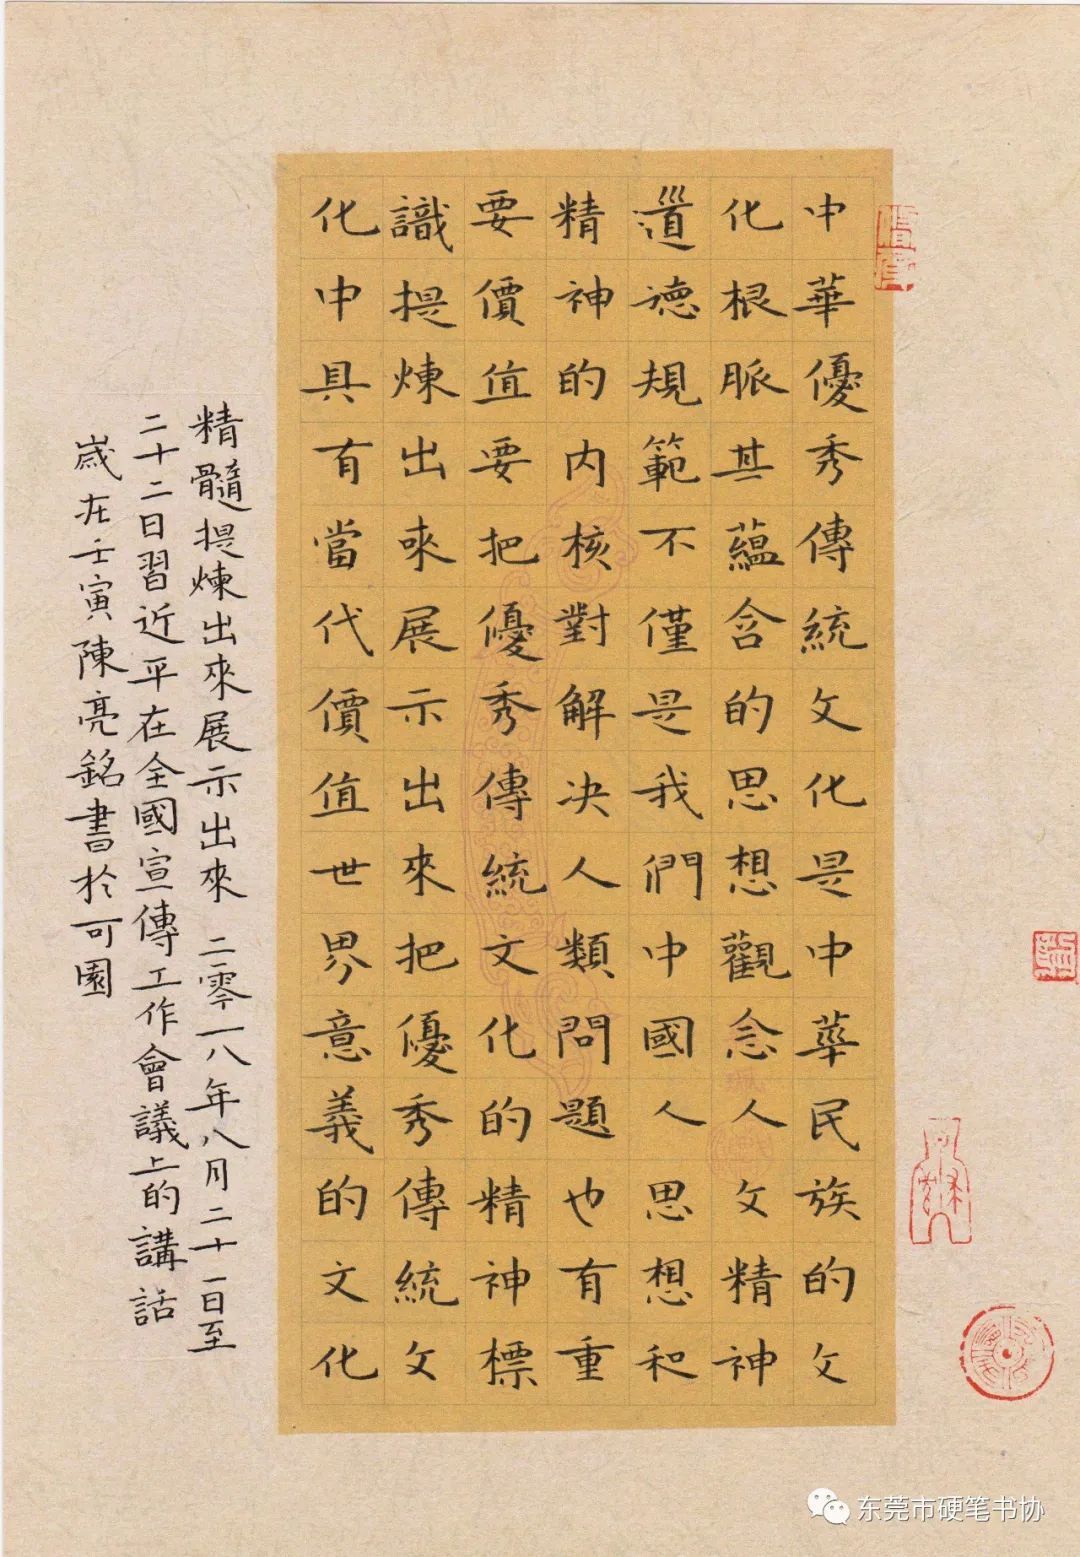 中華優秀傳統文化是中華民族的文
化根脈其蘊含的思想觀念人文精神
道德規範不僅是我們中國人思想和
精神的内核對解决人類問題也有重
要價值要把優秀傳統文化的精神標
識提煉出來展示出來把優秀傳統文
化中具有當代價值世界意義的文化
精髓提煉出來展示出來 二零一八年八月二十一日至
二十二日習近平在全國宣傳工作會議上的講話
歲在壬寅陳亮銘書於可園
东莞市硬笔书协